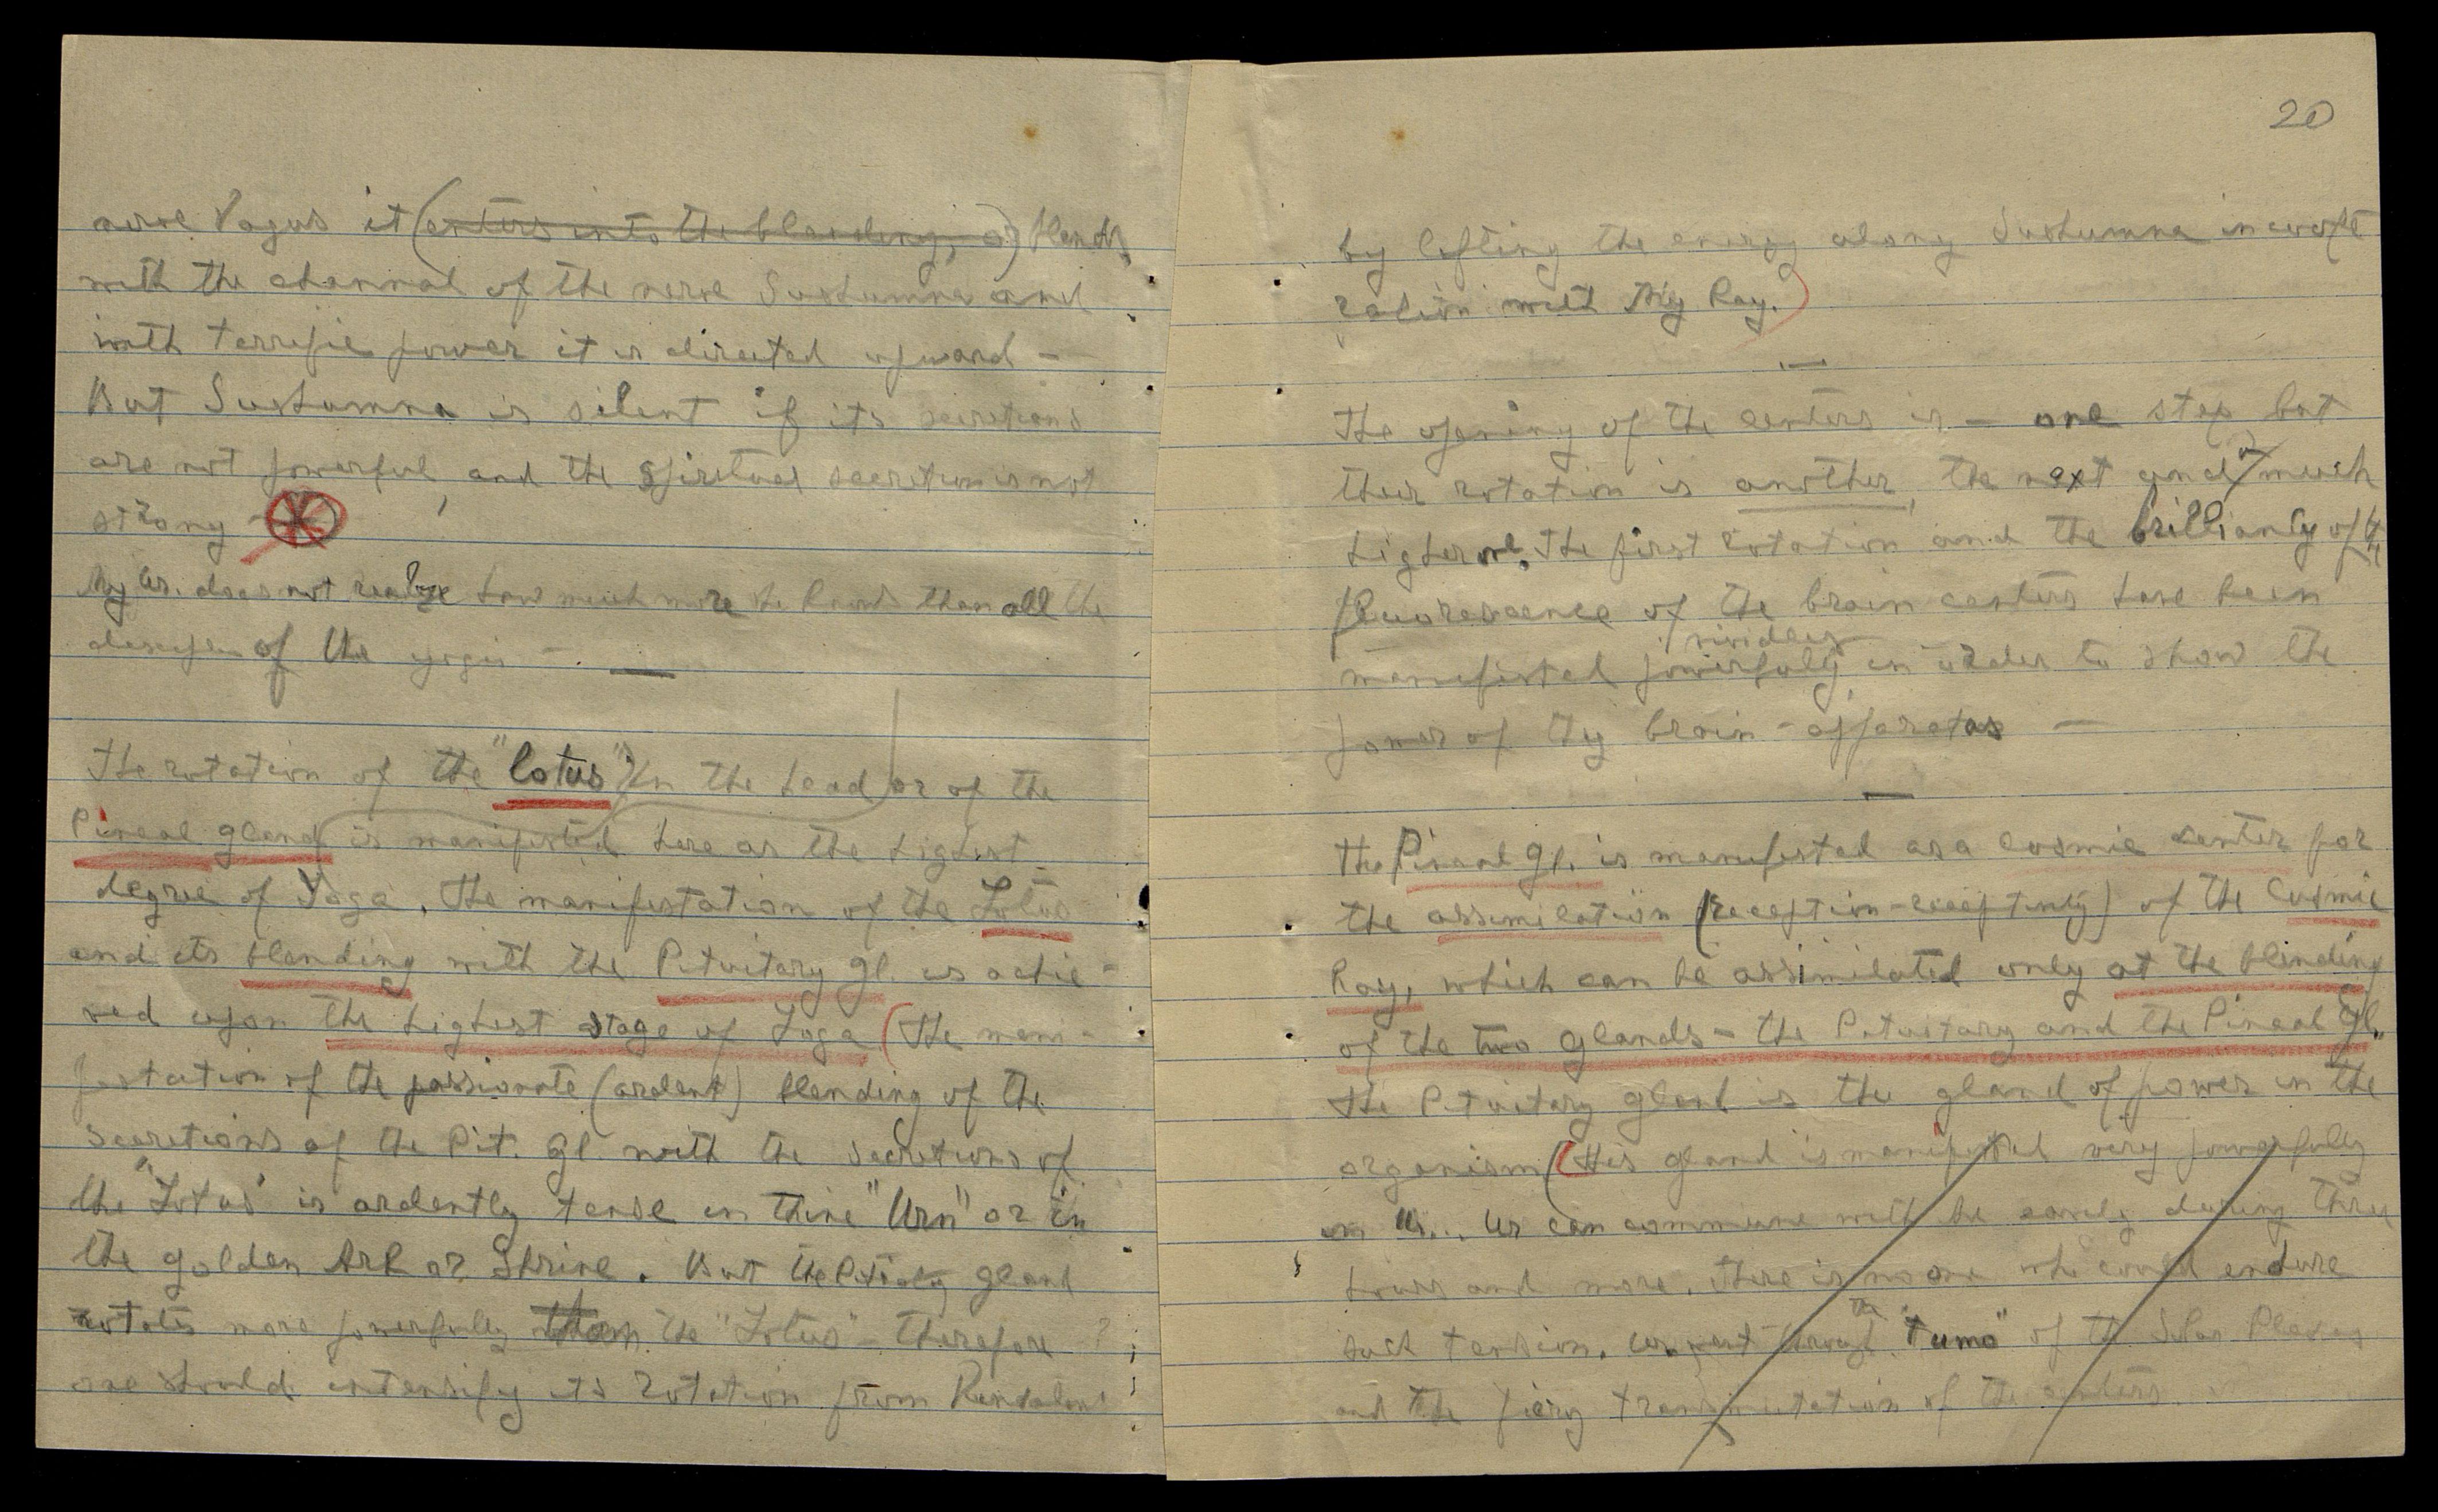 nerve Vagus it (enters into the blending, or) blends
with the channal of the nerve Sushumna and
with terrific power it is directed upward –
But Sushumna is silent if its secretions
are not powerful, and the spiritual secretion is not
strong –
My Ur. does not realize how much more she knows than all the
of the yogis – —
The rotation of the "lotus" in the head or of the
Pineal gland is manifested here as the highest
degree of Yoga. The manifestation of the Lotus
and its blending with the Pituitary gl. is achie-
ved upon the highest stage of Yoga (The mani-
festation of the passionate (ardent) blending of the
secretions of the Pit. gl. with the secretions of
the "Lotus" is ardently tense in thine "Urn" or in
the golden Ark or Shrine. But the Pituitary gland
rotates more powerfully than the "Lotus" – therefore ?
one should intensify its rotation from Kundalini
20
by lifting the energy along Sushumna in
ration with My Ray.)
—
The opening of the centers is – one step but
their rotation is another, the next and a much
higher one. The first rotation and the brilliancy of the
fluorescence of the brain centers have been
vividly
manifested powerfuly in order to show the
power of thy brain-apparatus —
—
The Pineal gl. is manifested as a cosmic center for
the assimilation (reception-receptivity) of the Cosmic
Ray, which can be assimilated only at the blending
of the two glands – the Pituitary and the Pineal gl.
The Pituitary gland is the gland of power in the
organism (this gland is manifested very powerfully
in Ur... Ur can commune with me easily during three
hours and more. There is no one who could endure
such tension. Ur. went through the "tumo" of the Solar Plexus
and the fiery transmutation of the centers.